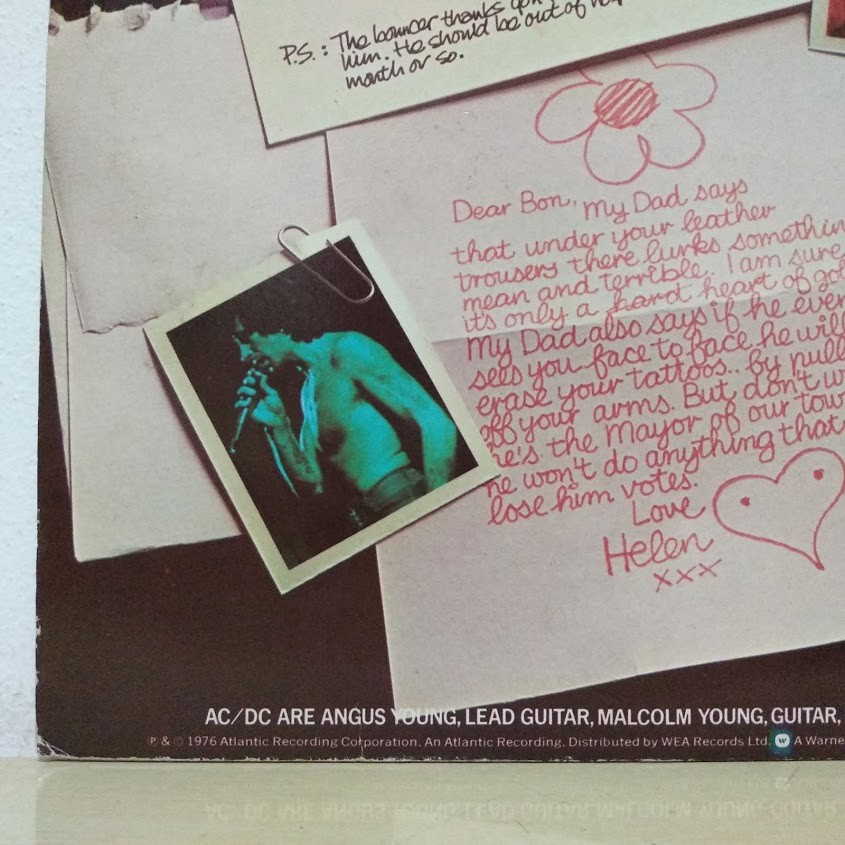 P.S. : The bouncer thanks
him. He should be out of
month or so.
Dear Bon, My Dad says
that under your leather
trousers there lurks somethin
mean and terrible. I am sure
it's only a hard heart of gol
My Dad also says if he ever
sees you face to face he will
erase your tattoos.. by pull
off your arms. But don't w
he's the Mayor of our tow
he won't do anything that
lose him votes.
Love
Helen
xxx
AC/DC ARE ANGUS YOUNG, LEAD GUITAR, MALCOLM YOUNG, GUITAR,
℗ & © 1976 Atlantic Recording Corporation. An Atlantic Recording. Distributed by WEA Records Ltd. W A Warne